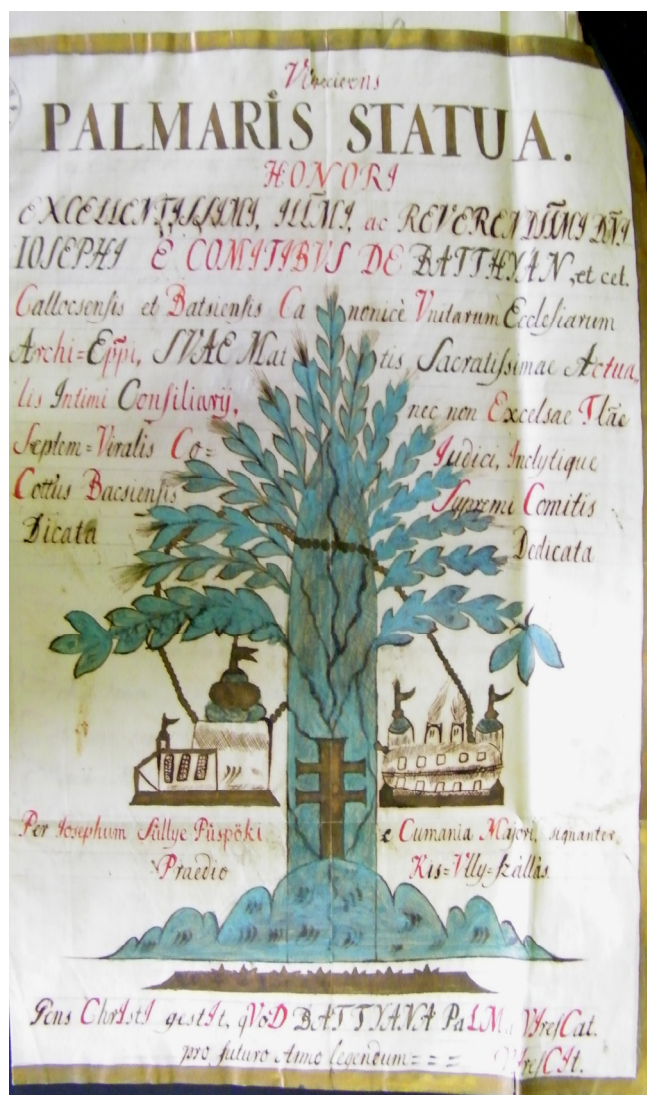 Vinciens
PALMARIS STATUA.
HONORI
EXCELLENTISSIMI, ILLM̄I, ac REVERENDISSIMI DN̄I
IOSEPHI E COMITIBVS DE BATTHYAN, et cet.
Collocsensis et Batsiensis Canonicè Vnitarum Ecclesiarum
Archi=Epp̄i, SVAE Mattis Sacratissimae Actua,,
lis Intimi Consiliarij, nec non Excelsae Tlāe
Septem=Viralis Co= Judici, Inclytique
Cottus Bacsiensis Supremi Comitis
Dicata Dedicata
Per Josephum Süllye Püspöki e Cumania Majori, signanter
Praedio Kis=Vlly=szállás.
Gens ChrIstI gestIt, qVoD BATTYANA PaLMa VIresCat.
pro futuro Anno legendum = = = VIresCIt.